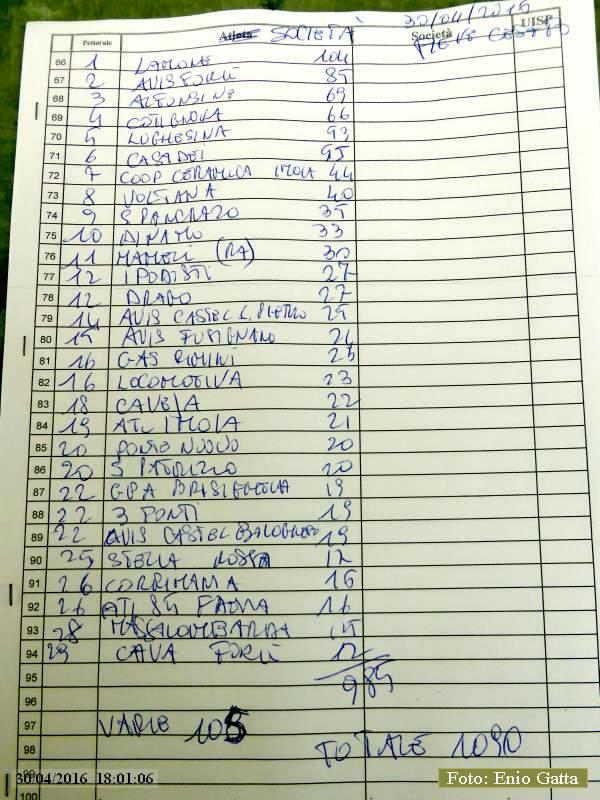 30/04/2016
Pettorale Atleta SOCIETÀ Società UISP
PIEVE CESATO
66 1 LAMONE 104
67 2 AVIS FORLÌ 85
68 3 ALFONSINE 69
69 4 COTIGNOLA 66
70 5 LUGHESINA
71 6 CASADEI
72 7 COOP CERAMICA IMOLA 44
73 8 VOLTANA 40
74 9 S PANCRAZIO 35
75 10 DINAMO 33
76 11 MAMELI (RA) 30
77 12 I PODISTI 27
78 12 DRAGO 27
79 14 AVIS CASTEL S. PIETRO 25
80 15 AVIS FUSIGNANO 24
81 16 GAS RIMINI 23
82 16 LOCOMOTIVA 23
83 18 CAVEJA 22
84 19 ATL IMOLA 21
85 20 PONTE NUOVO 20
86 20 S PATRIZIO 20
87 22 GPA BRISIGHELLA 19
88 22 3 PONTI 19
89 22 AVIS CASTEL BOLOGNESE 19
90 25 STELLA ROSSA 17
91 26 CORRIMANIA 16
92 26 ATL 85 FAENZA 16
93 28 MASSALOMBARDA 15
94 29 CAVA FORLÌ 12
95 985
96
97 VARIE 105
98 TOTALE 1090
99
100
30/04/2016 18:01:06
Foto: Enio Gatta